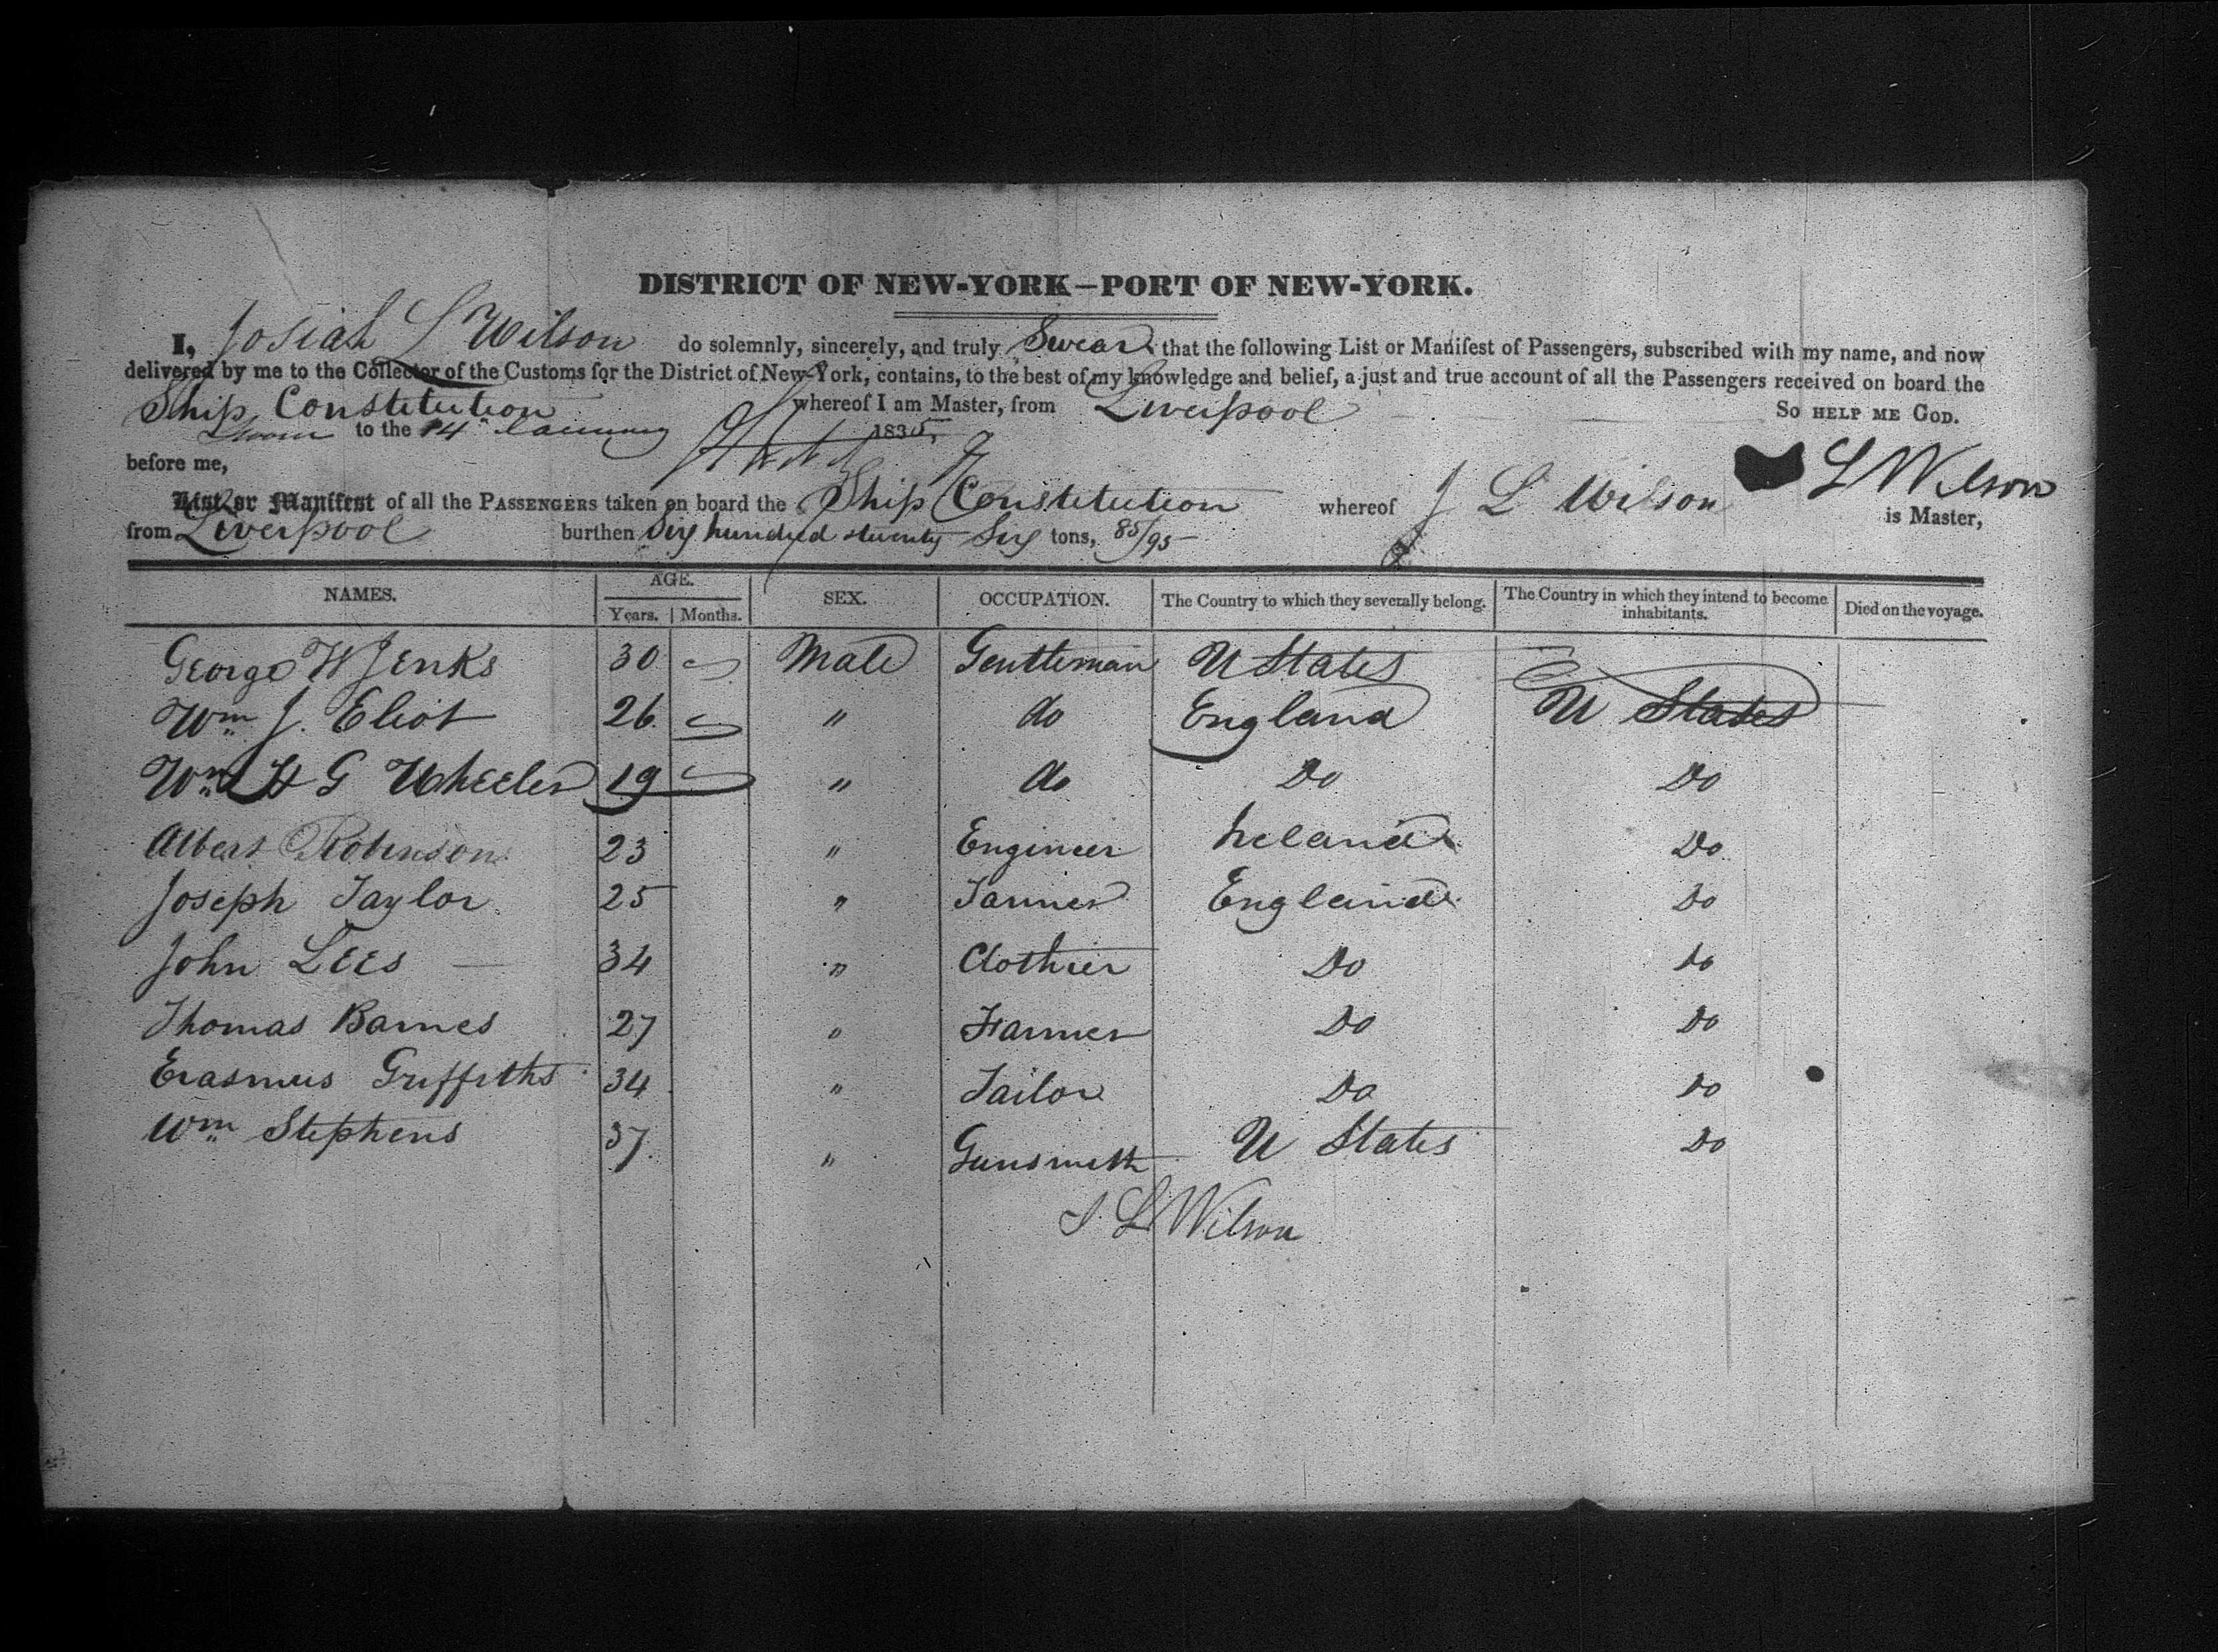 DISTRICT OF NEW-YORK—PORT OF NEW-YORK.
I, Josiah L Wilson do solemnly, sincerely, and truly Swear that the following List or Manifest of Passengers, subscribed with my name, and now
delivered by me to the Collector of the Customs for the District of New-York, contains, to the best of my knowledge and belief, a just and true account of all the Passengers received on board the
Ship Constitution whereof I am Master, from Liverpool So HELP ME GOD.
Sworn to the 14 January 1835,
before me, L Wilson
List or Manifest of all the PASSENGERS taken on board the Ship Constitution whereof J L Wilson is Master,
from Liverpool burthen Six hundred & twenty Six tons, 85/95
NAMES. AGE. SEX. OCCUPATION. The Country to which they severally belong. The Country in which they intend to become inhabitants. Died on the voyage.
Years. Months.
George W Jenks 30 Male Gentleman U States
Wm J. Eliot 26 " do England U States
Wm H G Wheeler 19 " do Do Do
Albert Robinson 23 " Engineer Ireland Do
Joseph Taylor 25 " Tanner England Do
John Lees — 34 " Clothier Do Do
Thomas Barnes 27 " Farmer Do Do
Erasmus Griffiths 34 " Tailor Do Do
Wm Stephens 37 " Gunsmith U States Do
J. L Wilson